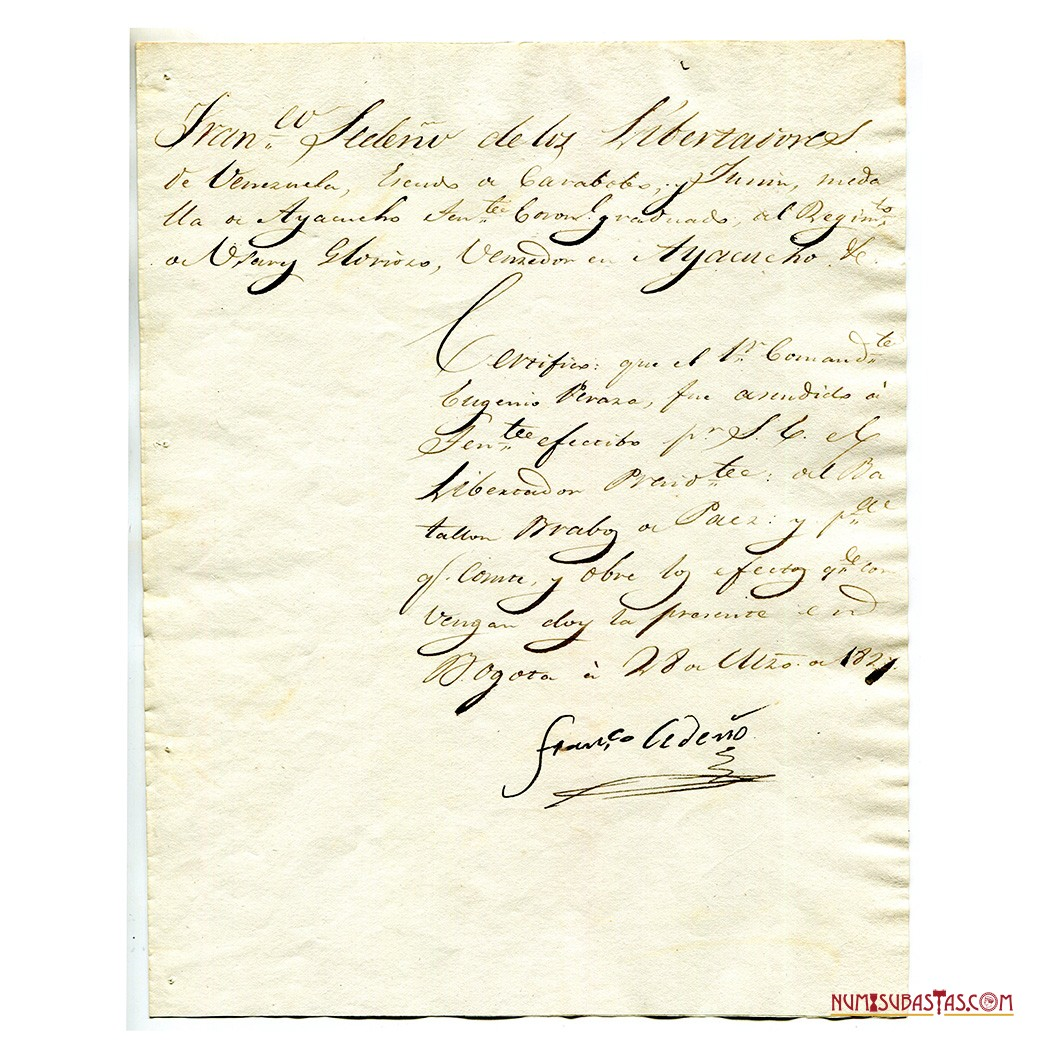 Fran.co Sedeño de los Libertadores
de Venezuela, Escudo de Carabobo, y Junin, meda
lla de Ayacucho Ten.te Coron.l graduado, del Regim.to
de Usares Glorioso, Vensedor en Ayacucho &.
Certifico: que el 1.r Comand.te
Eugenio Peraza, fue asendido á
Ten.tee efectibo p.r S. E. el
Libertador Preid.tee: del Ba
tallon Brabos de Paez: y p.a
q.e Conste, y obre los efectos q.e con
vengan doy la presente en
Bogota à 28 de de 1827.
Fran.co Cedeño
NUMISUBASTAS.COM